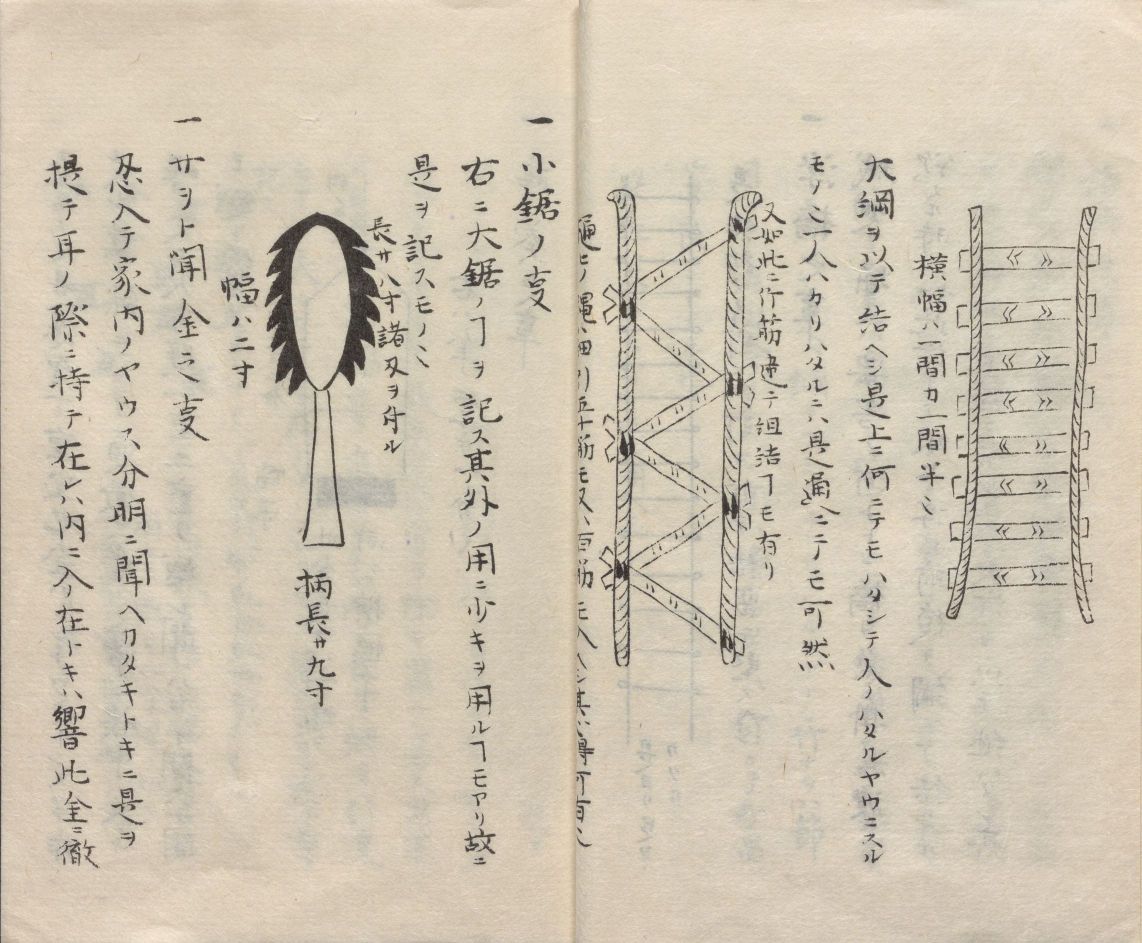 横幅ハ一間カ一間半也
大綱ヲ以テ結ヘシ是上ニ何ニテモハタシテ人ノハタルヤウニスル
モノ也一人ハカリハタルニハ具通ニテモ可然
又如此ニ作筋違テ組結ヿモ有リ
縄ハ細引五十筋モ又ハ百筋モ入ヘシ其心得可有之
一小鋸ノ叓
右ニ大鋸ノヿヲ記ス其外ノ用ニ少キヲ用ルヿモアリ故ニ
是ヲ記スモノ也
長サ八寸諸刃ヲ付ル
幅ハ二寸
柄長サ九寸
一サヲト聞金之叓
忍入テ家内ノヤウス分明ニ聞ヘカタキトキニ是ヲ
提テ耳ノ際ニ持テ在レハ内ニ人在トキハ響此金ニ徹